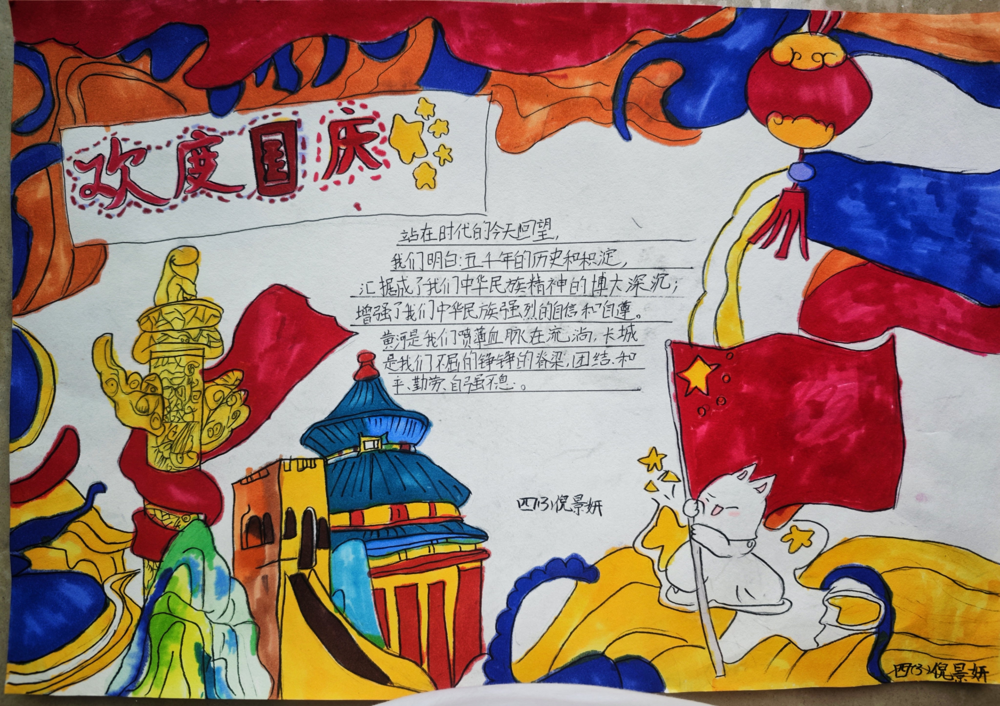 欢度国庆
站在时代的今天回望,
我们明白:五千年的历史和积淀,
汇据成了我们中华民族精神的博大深沉;
增强了我们中华民族强烈的自信和自尊。
黄河是我们喷薄血脉在流淌,长城
是我们不屈的铮铮的脊梁,团结、和
平、勤劳、自强不息。
四(3)倪景妍
四(3)倪景妍